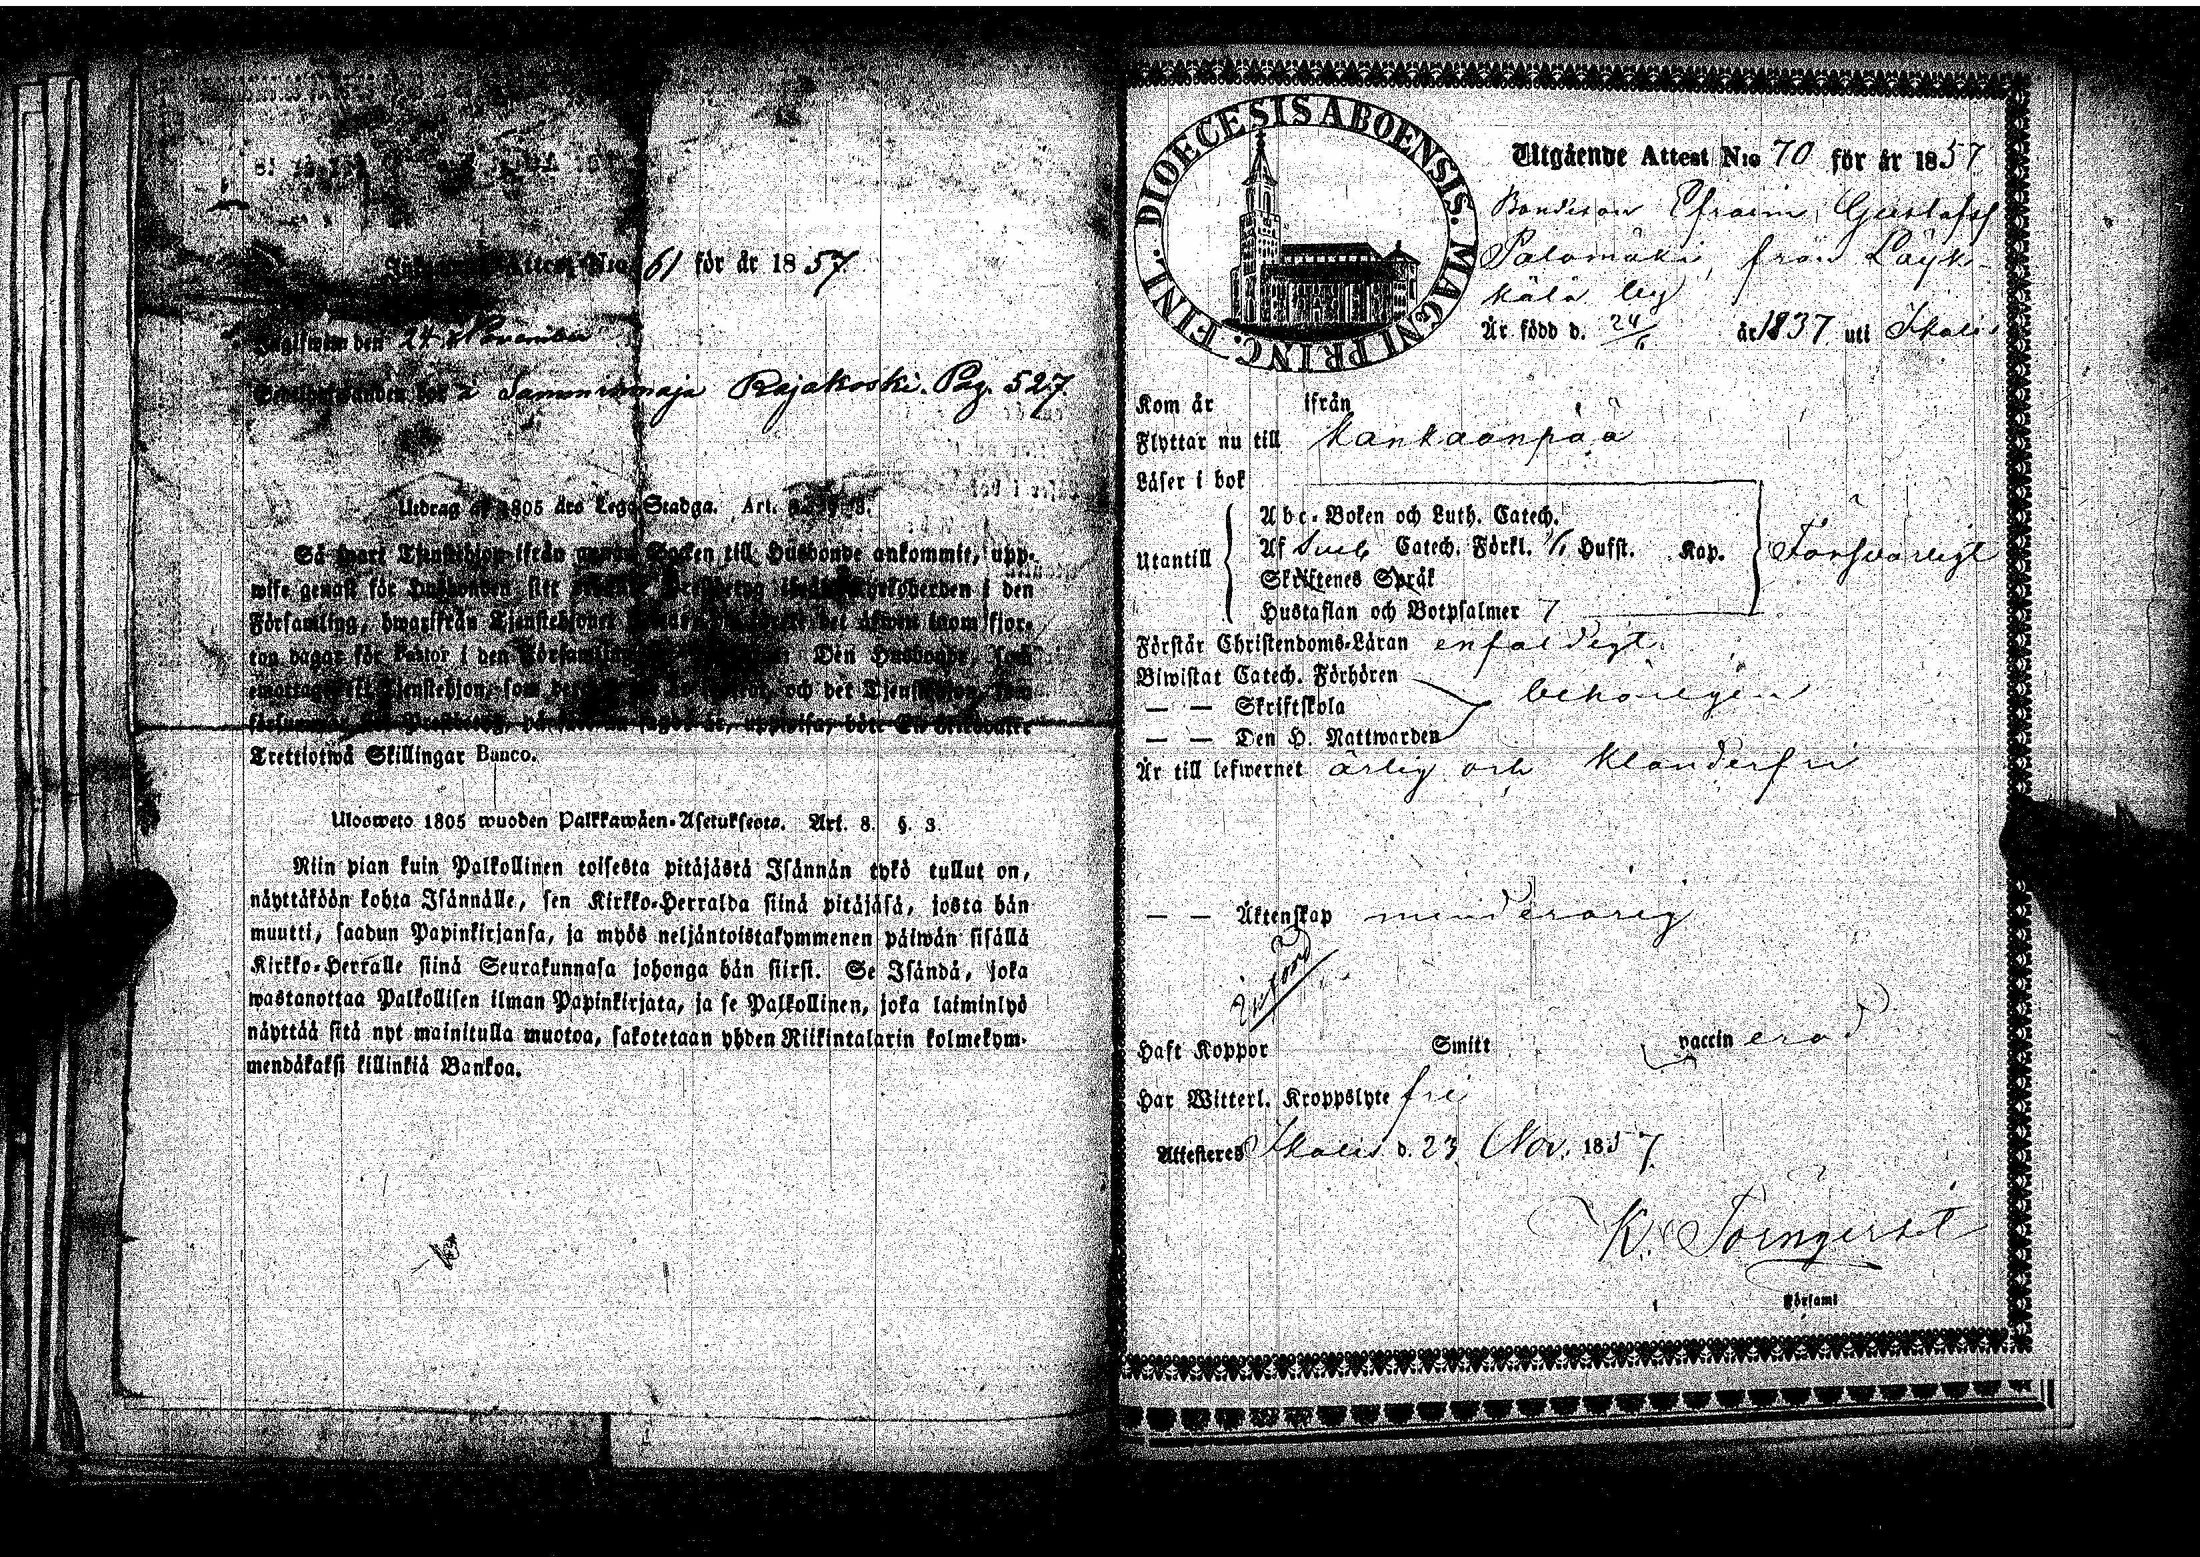 Attest N:o 61 för år 1857.
den 24 November
Sammimaja Rajakoski. Pag. 527.
Utdrag af 1805 års Lego-Stadga. Art. § 3.
Så snart Tjenstehjon ifrån annan Socken till Husbonde ankommit, upp-
wise genast för Husbonden sitt i den
Församling, hwarifrån Tjenstehjonet inom fjor-
ton dagar för Pastor i den Den Husbonde, som
emottager ett Tjenstehjon, som och det Tjenstehjon, som
Trettiotwå Skillingar Banco.
Ulosweto 1805 wuoden Palkkawäen-Asetuksesta. Art. 8. §. 3.
Niin pian kuin Palkollinen toisesta pitäjästä Isännän tykö tullut on,
näyttäköön kohta Isännälle, sen Kirkko-Herralda siinä pitäjäsä, josta hän
muutti, saadun Papinkirjansa, ja myös neljäntoistakymmenen päiwän sisällä
Kirkko-Herralle siinä Seurakunnasa johonga hän siirsi. Se Isändä, joka
wastanottaa Palkollisen ilman Papinkirjata, ja se Palkollinen, joka laiminlyö
näyttää sitä nyt mainitulla muotoa, sakotetaan yhden Riikintalarin kolmekym-
mendäkaksi killinkiä Bankoa.
DIOECESIS ABOENSIS. MAGNI PRINC. FINL.
Utgående Attest N:o 70 för år 1857
Bondeson Efraim Gustafss
Palomäki, från Läyk-
kälä by
Är född d. 24/11 år 1837 uti Ikalis
Kom år ifrån
Flyttar nu till Kankaanpää
Läser i bok
Utantill
Abc-Boken och Luth. Catech.
Af Sveb Catech. Förkl. 1/1 Husst. Kap.
Försvarligt
Skriftenes Språk
Hustaflan och Botpsalmer 7
Förstår Christendoms-Läran enfaldigt
Biwistat Catech. Förhören
behörigen
— — Skriftskola
— — Den H. Nattwarden
Är till lefwernet ärlig och klanderfri
— — Äktenskap minderårig
Införd
Haft Koppor Smitt vaccinerad
Har Witterl. Kroppslyte fri
Attesteres Ikalis d. 23 Nov. 1857.
K. Törnqvist
Förfaml